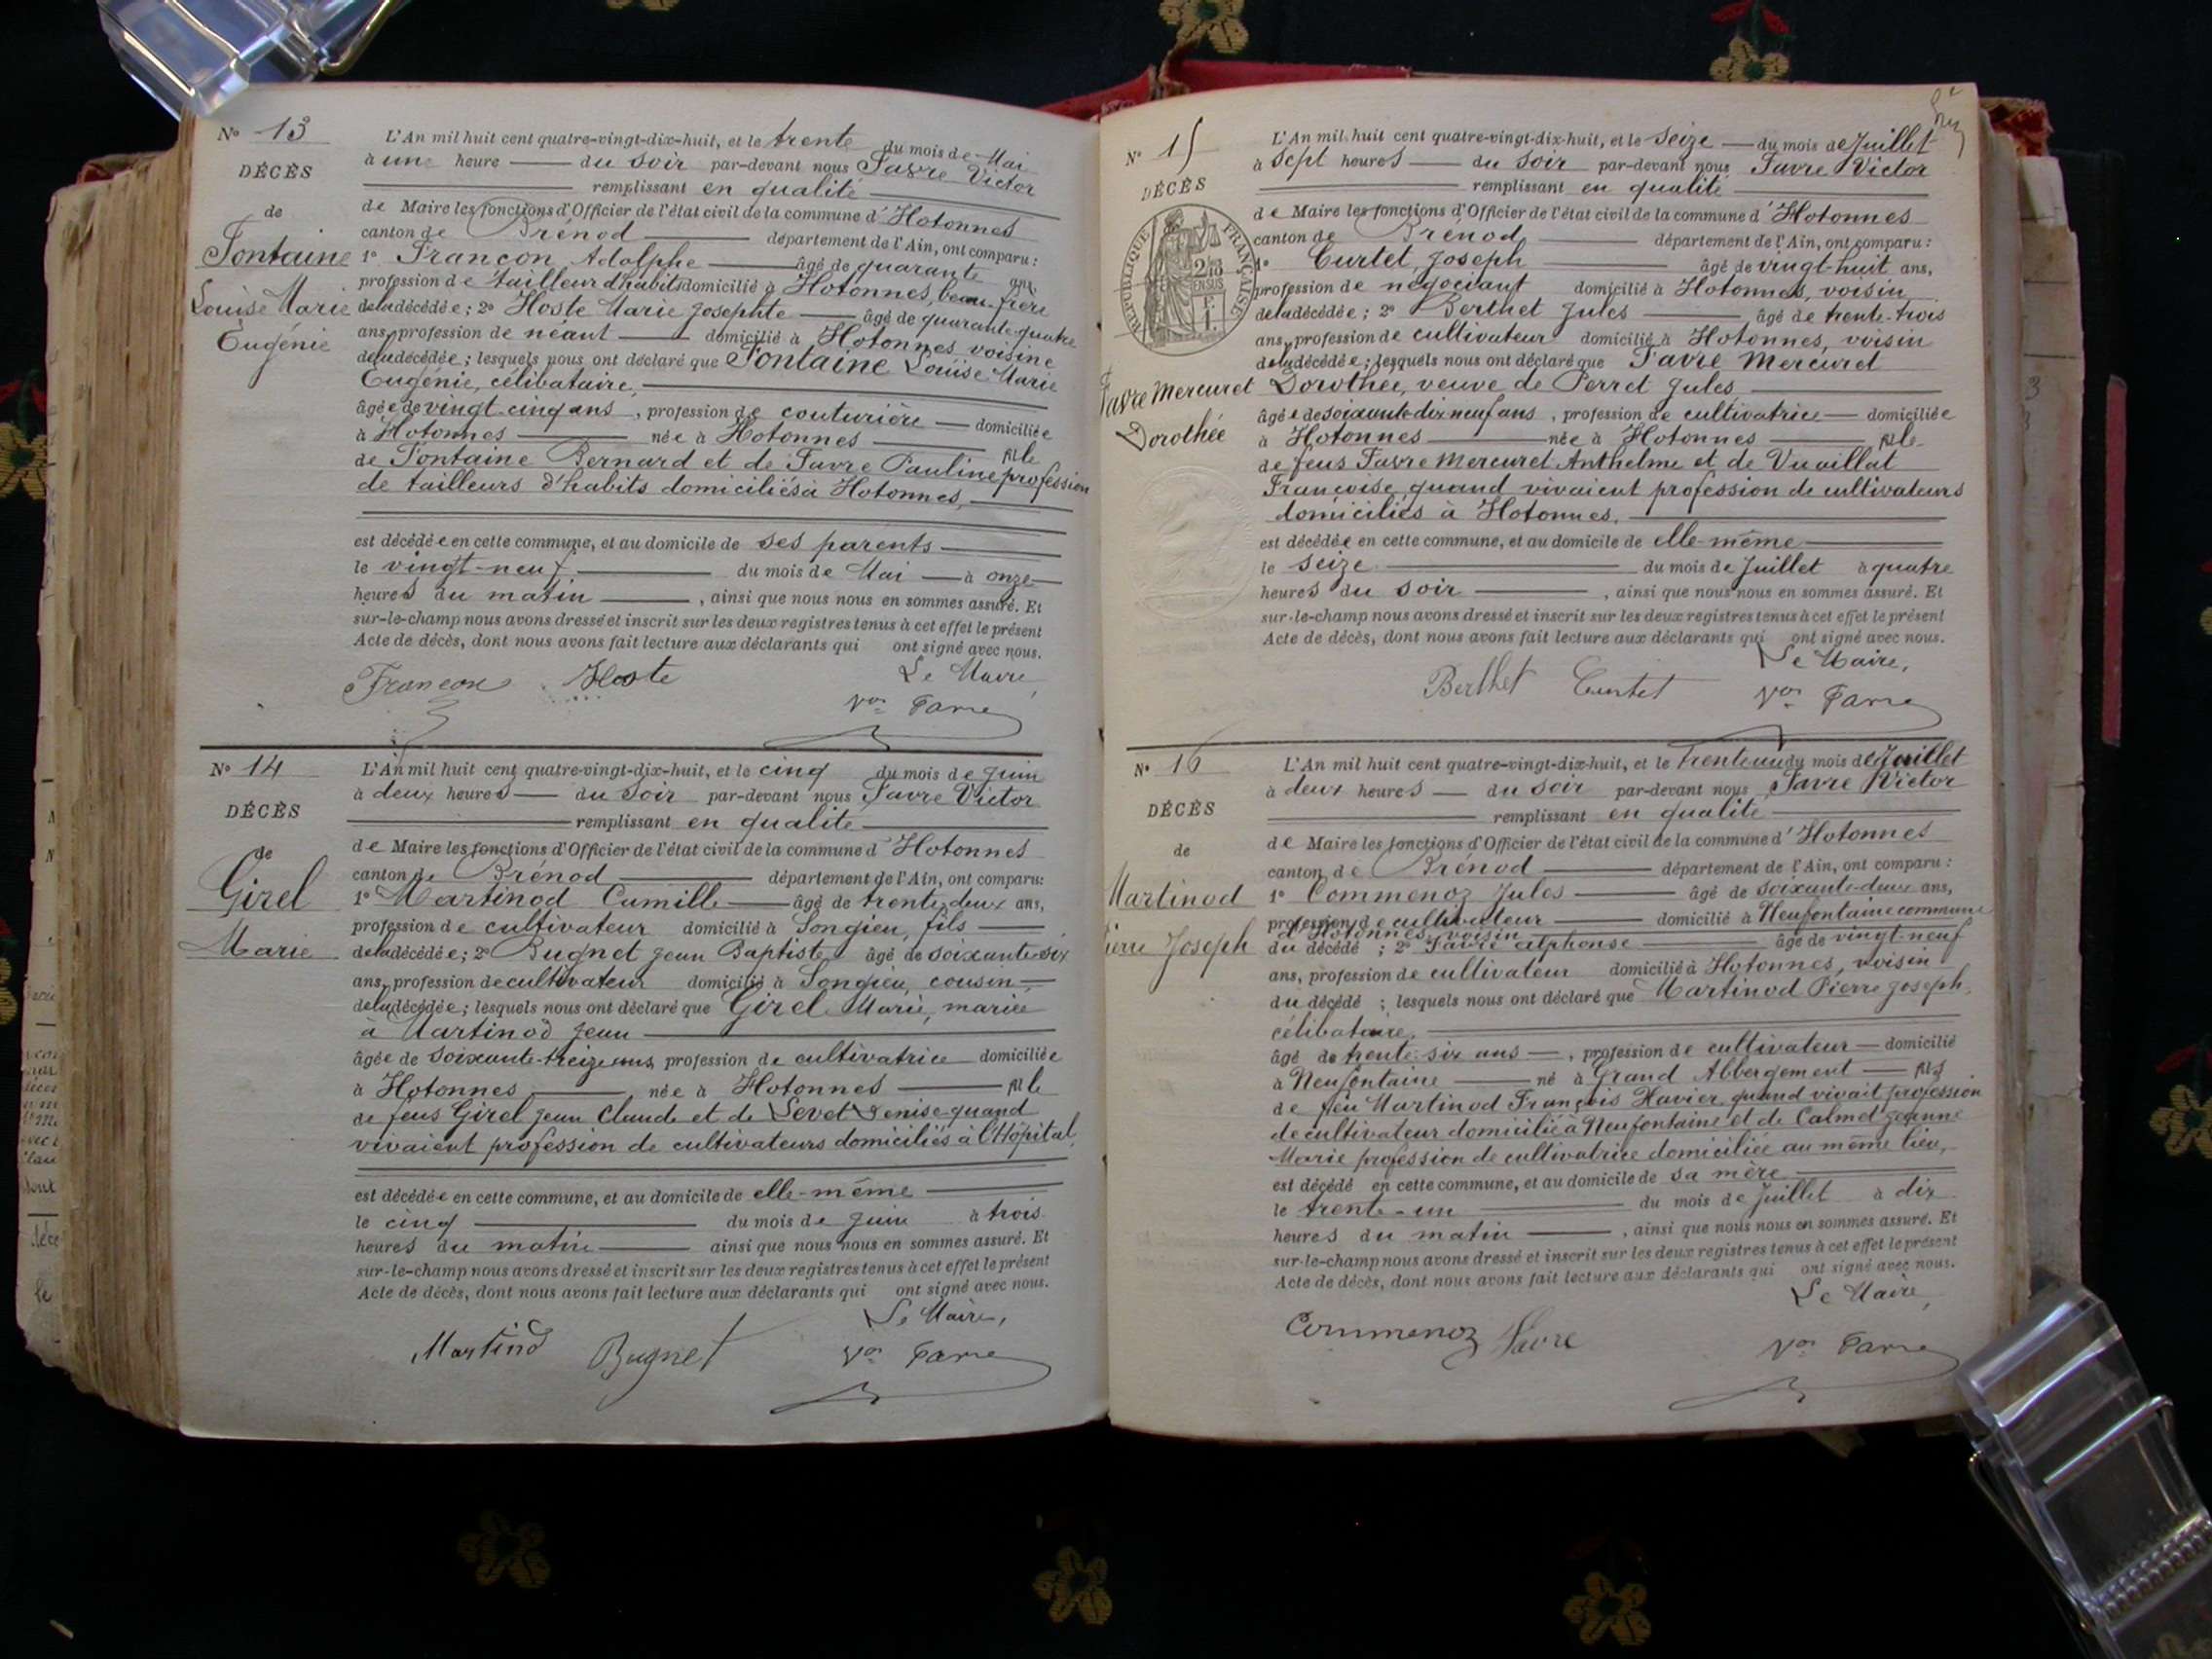 Nº 13
DÉCÈS
de
Fontaine
Louise Marie
Eugénie
L'An mil huit cent quatre-vingt-dix-huit, et le trente du mois de Mai
à une heure du soir par-devant nous Favre Victor
remplissant en qualité
de Maire les fonctions d'Officier de l'état civil de la commune d'Hotonnes
canton de Brénod département de l'Ain, ont comparu :
1º Françon Adolphe âgé de quarante ans
profession de tailleur d'habits domicilié à Hotonnes, beau-frère
de la décédée ; 2º Hoste Marie Josephte âgé de quarante-quatre
ans, profession de néant domicilié à Hotonnes voisine
de la décédée ; lesquels nous ont déclaré que Fontaine Louise Marie
Eugénie, célibataire,
âgée de vingt-cinq ans, profession de couturière domiciliée
à Hotonnes née à Hotonnes fille
de Fontaine Bernard et de Favre Pauline profession
de tailleurs d'habits domiciliés à Hotonnes,
est décédée en cette commune, et au domicile de ses parents
le vingt-neuf du mois de Mai à onze
heures du matin, ainsi que nous nous en sommes assuré. Et
sur-le-champ nous avons dressé et inscrit sur les deux registres tenus à cet effet le présent
Acte de décès, dont nous avons fait lecture aux déclarants qui ont signé avec nous.
Françon Hoste Le Maire,
Vor Favre
Nº 14
DÉCÈS
de
Girel
Marie
L'An mil huit cent quatre-vingt-dix-huit, et le cinq du mois de Juin
à deux heures du soir par-devant nous Favre Victor
remplissant en qualité
de Maire les fonctions d'Officier de l'état civil de la commune d'Hotonnes
canton de Brénod département de l'Ain, ont comparu :
1º Martinod Camille âgé de trente-deux ans,
profession de cultivateur domicilié à Songieu, fils
de la décédée ; 2º Bugnet Jean Baptiste âgé de soixante-six
ans, profession de cultivateur domicilié à Songieu, cousin
de la décédée ; lesquels nous ont déclaré que Girel Marie, mariée
à Martinod Jean
âgée de soixante-treize ans, profession de cultivatrice domiciliée
à Hotonnes née à Hotonnes fille
de feus Girel Jean Claude et de Levet Denise quand
vivaient profession de cultivateurs domiciliés à l'Hôpital,
est décédée en cette commune, et au domicile de elle-même
le cinq du mois de Juin à trois
heures du matin ainsi que nous nous en sommes assuré. Et
sur-le-champ nous avons dressé et inscrit sur les deux registres tenus à cet effet le présent
Acte de décès, dont nous avons fait lecture aux déclarants qui ont signé avec nous.
Le Maire,
Martinod Bugnet Vor Favre
Nº 15
DÉCÈS
RÉPUBLIQUE FRANÇAISE
Favre Mercuret
Dorothée
L'An mil huit cent quatre-vingt-dix-huit, et le seize du mois de Juillet
à sept heures du soir par-devant nous Favre Victor
remplissant en qualité
de Maire les fonctions d'Officier de l'état civil de la commune d'Hotonnes
canton de Brénod département de l'Ain, ont comparu :
1º Curtet Joseph âgé de vingt-huit ans,
profession de négociant domicilié à Hotonnes, voisin
de la décédée ; 2º Berthet Jules âgé de trente-trois
ans, profession de cultivateur domicilié à Hotonnes, voisin
de la décédée ; lesquels nous ont déclaré que Favre Mercuret
Dorothée, veuve de Perret Jules
âgée de soixante-dix neuf ans, profession de cultivatrice domiciliée
à Hotonnes née à Hotonnes fille
de feus Favre Mercuret Anthelme et de Vuaillat
Françoise quand vivaient profession de cultivateurs
domiciliés à Hotonnes.
est décédée en cette commune, et au domicile de elle-même
le seize du mois de Juillet à quatre
heures du soir, ainsi que nous nous en sommes assuré. Et
sur-le-champ nous avons dressé et inscrit sur les deux registres tenus à cet effet le présent
Acte de décès, dont nous avons fait lecture aux déclarants qui ont signé avec nous.
Le Maire,
Berthet Curtet Vor Favre
Nº 16
DÉCÈS
de
Martinod
Pierre Joseph
L'An mil huit cent quatre-vingt-dix-huit, et le trente un du mois de Juillet
à deux heures du soir par-devant nous Favre Victor
remplissant en qualité
de Maire les fonctions d'Officier de l'état civil de la commune d'Hotonnes
canton de Brénod département de l'Ain, ont comparu :
1º Commenoz Jules âgé de soixante-deux ans,
profession de cultivateur domicilié à Neufontaine commune
d'Hotonnes, voisin
du décédé ; 2º Favre Alphonse âgé de vingt-neuf
ans, profession de cultivateur domicilié à Hotonnes, voisin
du décédé ; lesquels nous ont déclaré que Martinod Pierre Joseph,
célibataire,
âgé de trente-six ans, profession de cultivateur domicilié
à Neufontaine né à Grand Abbergement fils
de feu Martinod François Xavier quand vivait profession
de cultivateur domicilié à Neufontaine et de Calmet Jeanne
Marie profession de cultivatrice domiciliée au même lieu,
est décédé en cette commune, et au domicile de sa mère
le trente-un du mois de Juillet à dix
heures du matin, ainsi que nous nous en sommes assuré. Et
sur-le-champ nous avons dressé et inscrit sur les deux registres tenus à cet effet le présent
Acte de décès, dont nous avons fait lecture aux déclarants qui ont signé avec nous.
Le Maire,
Commenoz Favre Vor Favre